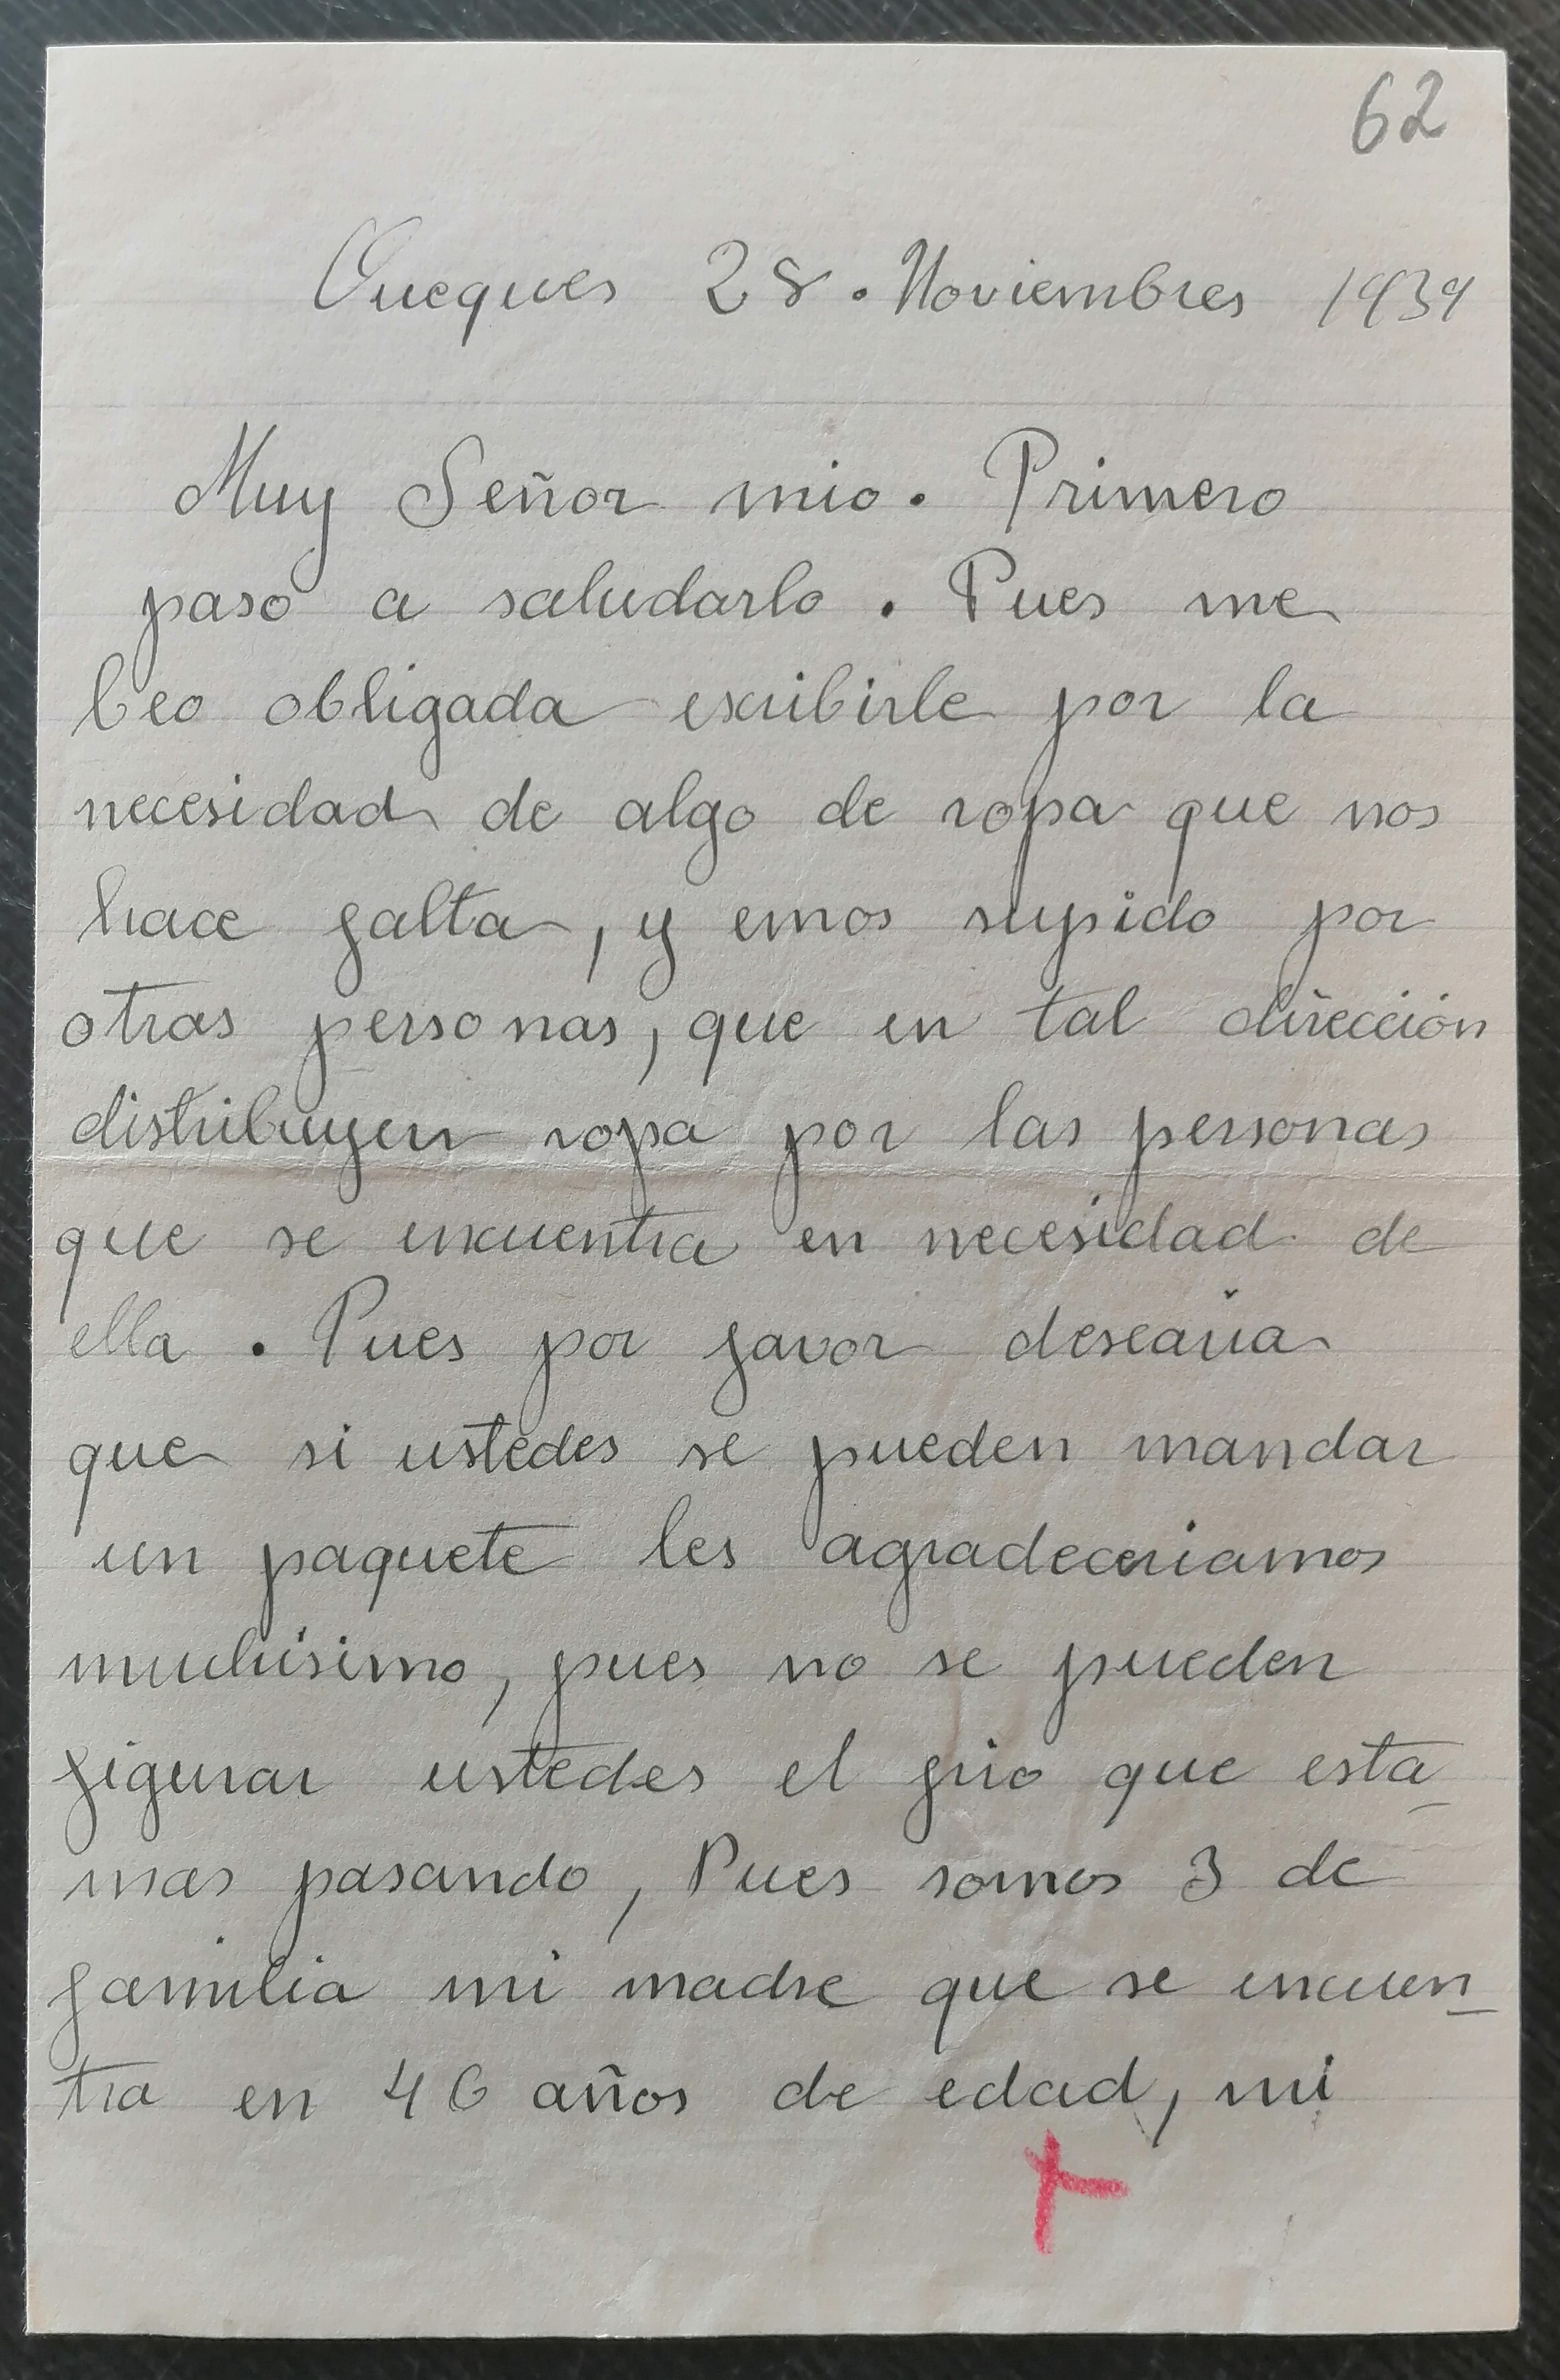 62
Oucques 28. Noviembres 1939
Muy Señor mio. Primero
paso a saludarlo. Pues me
beo obligada escribirle por la
necesidad de algo de ropa que nos
hace falta, y emos supido por
otras personas, que en tal dirección
distribuyen ropa por las personas
que se encuentra en necesidad de
ella. Pues por favor desearia
que si ustedes se pueden mandar
un paquete les agradeceriamos
muchisimo, pues no se pueden
figurar ustedes el frio que esta
mos pasando, Pues somos 3 de
familia mi madre que se encuen
tra en 46 años de edad, mi